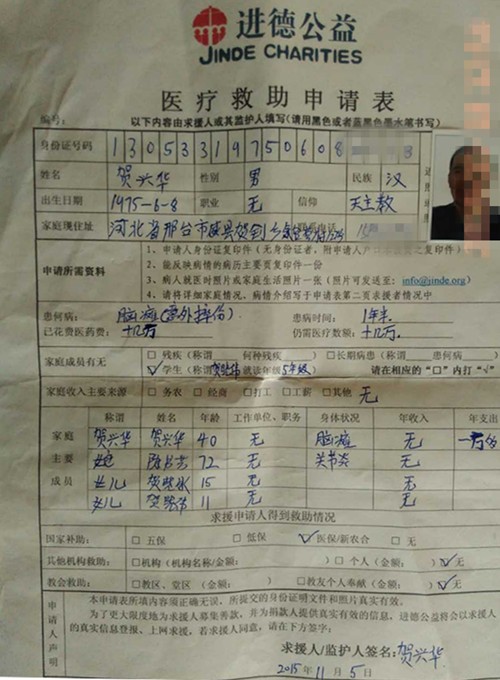 进德公益
JINDE CHARITIES
医疗救助申请表
编号：
以下内容由求援人或其监护人填写(请用黑色或者蓝黑色墨水笔书写)
身份证号码 1 3 0 5 3 3 1 9 7 5 0 6 0 8
姓名 贺兴华 性别 男 民族 汉
出生日期 1975-6-8 职业 无 信仰 天主教
家庭现住址 河北省邢台市威县贺钊乡 联系电话
申请所需资料
1、申请人身份证复印件（无身份证者，附申请人户口本复印件）
2、能反映病情的病历主要页复印件一份
3、病人就医时照片或家庭生活照片一张（照片可发送至：info@jinde.org）
4、请将详细家庭情况、病情介绍写于申请表第二页求援者情况中
患何病：脑瘫(意外摔伤) 患病时间：1年半
已花费医药费：十几万 仍需医疗数额：十几万.
家庭成员有无 □残疾（称谓 何种残疾 ） □长期患病（称谓 患何病 ）
√学生（称谓 就读年级5年级） 请在相应的“□”内打“√”
家庭收入主要来源 □务农 □经商 □打工 □工薪 □其他 无
家庭主要成员
称谓 姓名 年龄 工作单位、职务 身体状况 年收入 年支出
贺兴华 贺兴华 40 无 脑瘫 无
72 无 关节炎 无
女儿 15 无 无
女儿 11 无 无
求援申请人得到救助情况
国家补助： □五保 □低保 √医保/新农合 □无
其他机构救助： □机构（机构名称/金额： ） □个人（金额： ） √无
教会救助： □教区、堂区（金额： ） □教友个人奉献（金额： ） √无
申请人声明
本申请表所填内容须正确无误，所提交的身份证明文件和照片真实有效。
为了更大限度地为求援人募集善款，并为捐款人提供真实有效的信息，进德公益将会以求援人
的真实信息登报、上网求援，若求援人同意，请在下方签字：
求援人/监护人签名：贺兴华
2015年11月5日